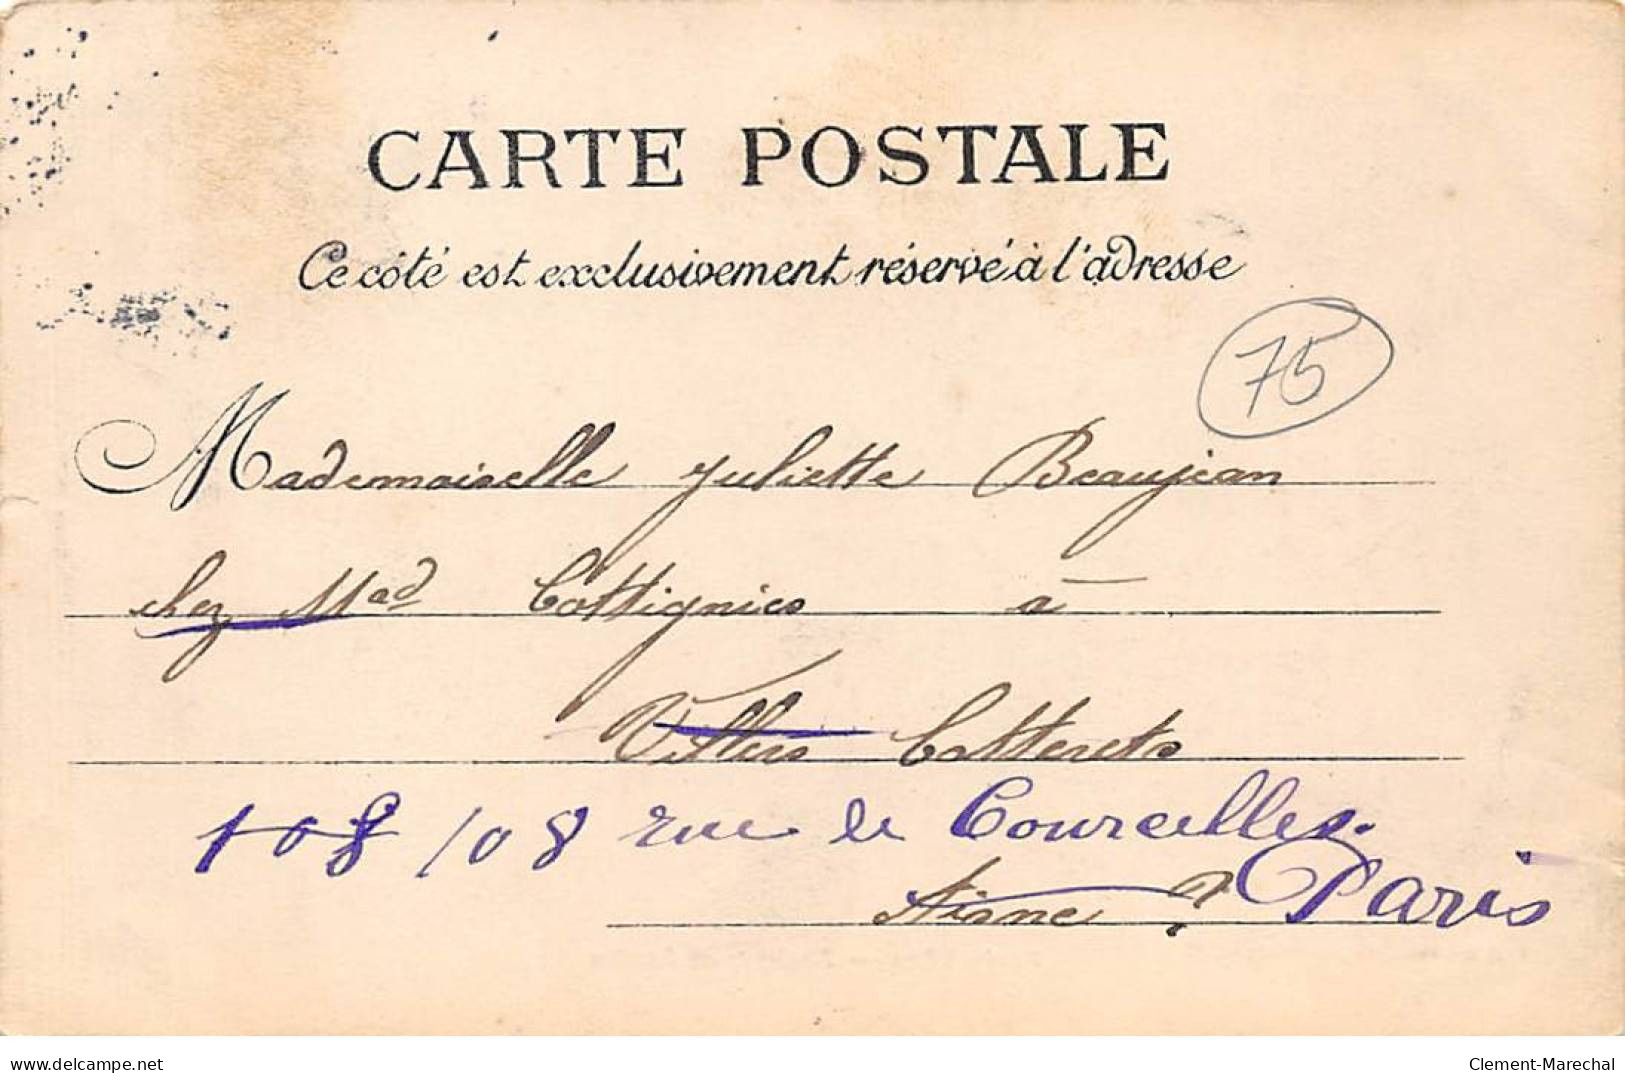 CARTE POSTALE
Ce côté est exclusivement réservé à l'adresse
75
Mademoiselle Juliette Beaujean
chez Mad Cottignies à
Villers Cotterets
108 108 rue de Courcelles.
Aisne Paris
delcampe.net
Clement-Marechal